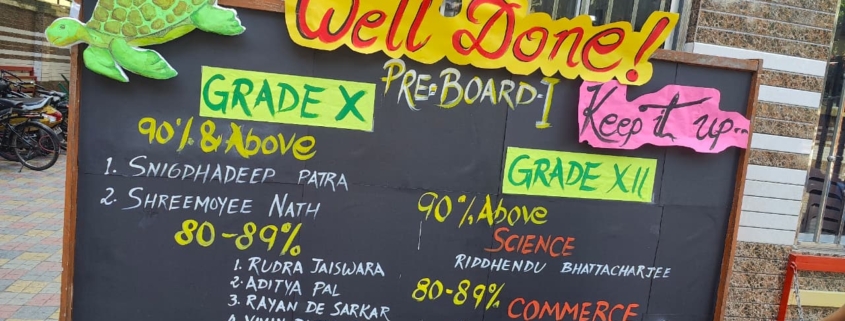 Well Done!
PRE-BOARD-I
Keep it up..
GRADE X
90% & Above
1. SNIGDHADEEP PATRA
2. SHREEMOYEE NATH
80-89%
1. RUDRA JAISWARA
2. ADITYA PAL
3. RAYAN DE SARKAR
GRADE XII
90% Above
SCIENCE
RIDDHENDU BHATTACHARJEE
80-89%
COMMERCE